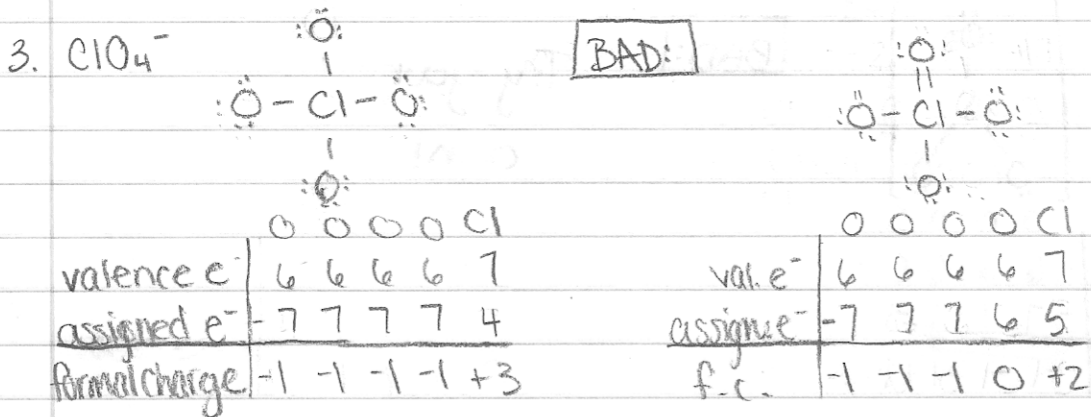 3. ClO4⁻
:Ö:
:Ö - Cl - Ö:
:Ö:
O O O O Cl
valence e⁻ 6 6 6 6 7
assigned e⁻ -7 7 7 7 4
formal charge -1 -1 -1 -1 +3
BAD:
:O:
||
:Ö - Cl - Ö:
:O:
O O O O Cl
val. e⁻ 6 6 6 6 7
assign e⁻ -7 7 7 6 5
f.c. -1 -1 -1 0 +2